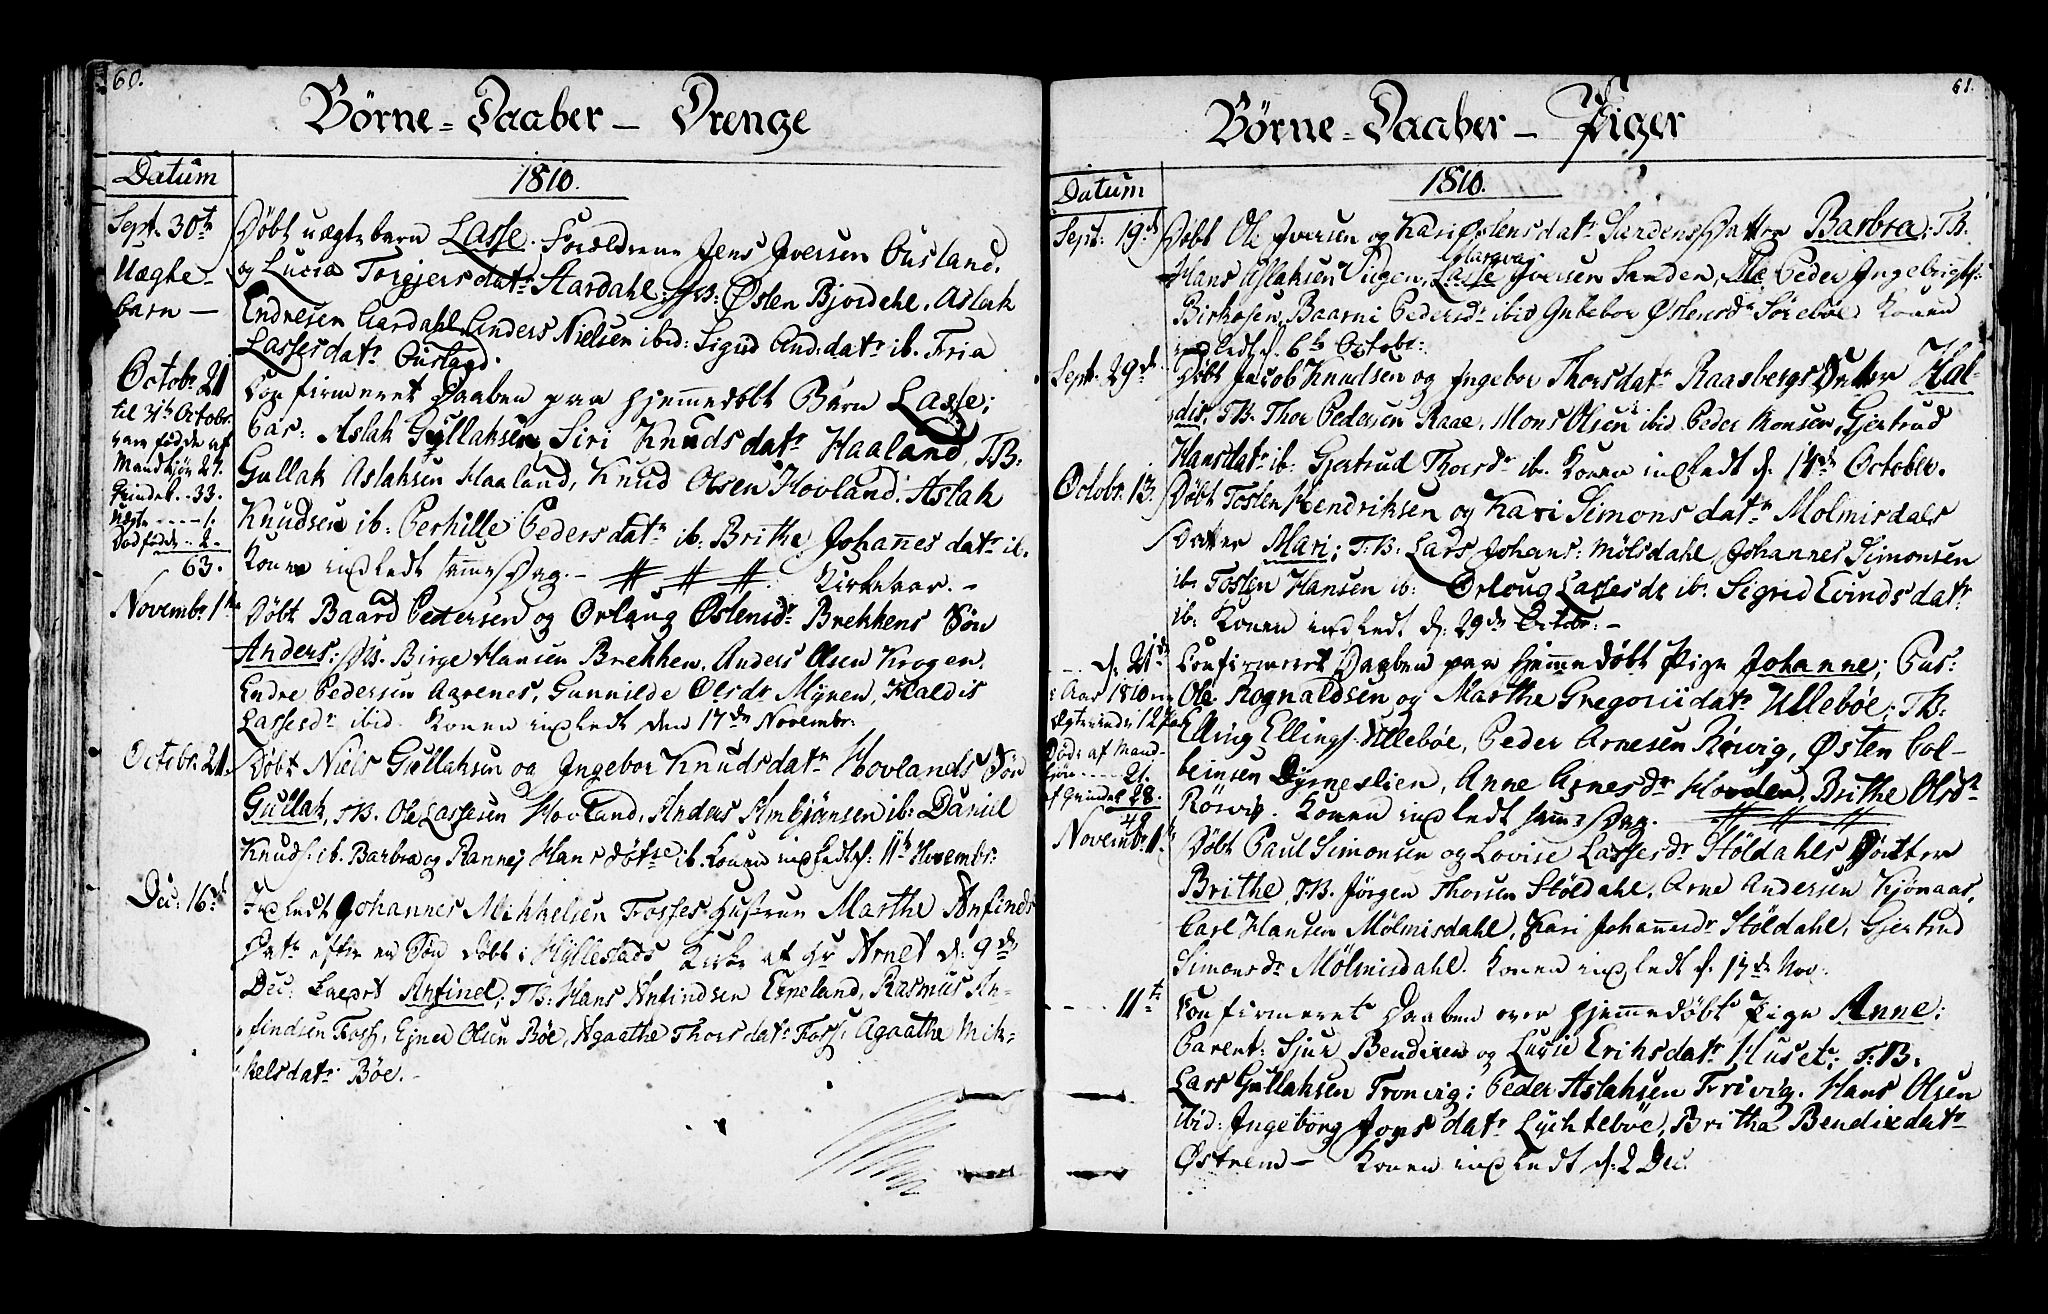 60.
Börne-Daaber - Drenge
Datum
1810.
Sept. 30te
Uægte-
barn —
Döbt uægtebarn Lasse. Forældrene Jens Iversen Ousland,
og Lucia Torgjersdatr Aardahl; TB: Østen Bjordahl, Aslak
Endresen Aardahl, Anders Nielsen ibid: Sigrid And:datr ib. Fria
Lassesdatr Ousland.
Octobr 21
til 31te Octobr
vare fødde af
Mandkjön 27.
Qvindek. 33.
Uægte ---- 1.
Dødfödde .. 2.
63.
Confirmeret Daaben paa hjemmedöbt Barn Lasse;
Par: Aslak Gullaksen, Siri Knudsdatr Haaland, TB:
Gullak Aslaksen Haaland, Knud Olsen Hovland, Aslak
Knudsen ib: Perhille Pedersdatr ib. Brithe Johannesdatr ib.
Konen indledt samme Dag. — # # # Kirkeaar. -
Novembr 1te
Döbt Baard Pettersen og Orlaug Østensdr Brekkens Sön
Anders; TB. Birge Hansen Brekken, Anders Olsen Krogen,
Endre Pedersen Aarenes, Gunnilde Olsdr Myren, Haldis
Lassesdr ibid. Konen indledt den 17de Novembr:
Octobr. 21.
Döbt Niels Gullaksen og Ingebor Knudsdatr Hovlands Sön
Gullak, TB. Ole Lassesen Hovland, Anders Ambjönsen ib: Daniel
Knuds: ib. Barbra og Rannej Hansdötre ib. Konen indledt d: 11te Novembr:
Dec: 16de
Indledt Johannes Mikkelsen Fosses Hustrue Marthe Anfinds
Datr efter en Sön döbt i Hyllestads Kirke af Hr Arnet d: 9de
Dec: kaldet Anfind; TB: Hans Anfindsen Espeland, Rasmus An-
findsen Foss, Ejner Olsen Böe, Agaathe Thorsdatr Foss, Agaathe Mik-
kelsdatr Böe. -
61.
Börne-Daaber - Piger
Datum
1810.
Sept: 19de
Döbt Ole Iversen og Kari Østensdatr Sandens Datter Barbra; TB.
Hans Aslaksen Lasse Iversen Sanden, Peder Ingebrigts:
Birkosen, Baarni Pedersdr ibid Gutebor Østensdr Söreböe Konen
indledt d. 6te Octobr:
Sept. 29de
Döbt Jacob Knudsen og Ingebor Thorsdatr Raasbergs Datter Hal-
dis, TB. Thor Pedersen Raae, Mons Olsen ibid Peder Monsen, Gjertrud
Hansdatr ib. Gjertrud Thorsdr ib. Konen indledt d. 14de October.
Octobr. 13.
Döbt Tosten Hendriksen og Kari Simonsdatr Molmisdals
Datter Mari; TB. Lars Johans: Mölsdahl, Johannes Simonsen
ib. Tosten Hansen ib: Orloug Lassesdr ib. Sigrid Evindsdatr
ib. Konen indledt d: 29de Octobr: —
--- d. 21de
Aar 1810
Ægteviede 12 Par
Döde af Mand-
kjön .... 21.
af Qvindek 28.
Confirmeret Daaben paa hjemmedöbt Pige Johanne; Par:
Ole Rognaldsen og Marthe Gregoriidatr Ulleböe; TB:
Elling Ellings: Ulleböe, Peder Arnesen Rörvig, Østen Col-
beinsen Dyrneslien, Anne Arnesdr Hovden, Brithe Olsdr
Rörvig. Konen indledt samme Dag. # # #
Novembr 1te
Döbt Paul Simonsen og Lovise Lassesdr Stöldahls Dotter
Brithe, TB. Jörgen Thorsen Stöldahl, Arne Andersen Kjönaas,
Carl Hansen Mölmisdahl, Kari Johannesdr Stöldahl, Gjertrud
Simonsdr Mölmisdahl. Konen indledt d. 17de Nov:
---- 11te
Confirmeret Daaben over hjemmedöbt Pige Anne;
Parent: Sjur Bendixen og Lucie Eriksdatr Huset; TB.
Lars Gullaksen Tronvig; Peder Aslaksen Trivig. Hans Olsen
ibid: Ingeborg Jonsdatr Lyckteböe, Britha Bendixdatr
Østrem — Konen indledt d. 2 Dec.